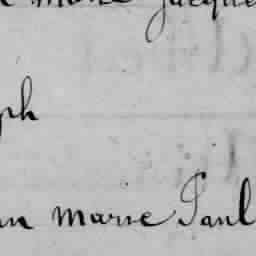 marie Jacque
ph
an marie Paul